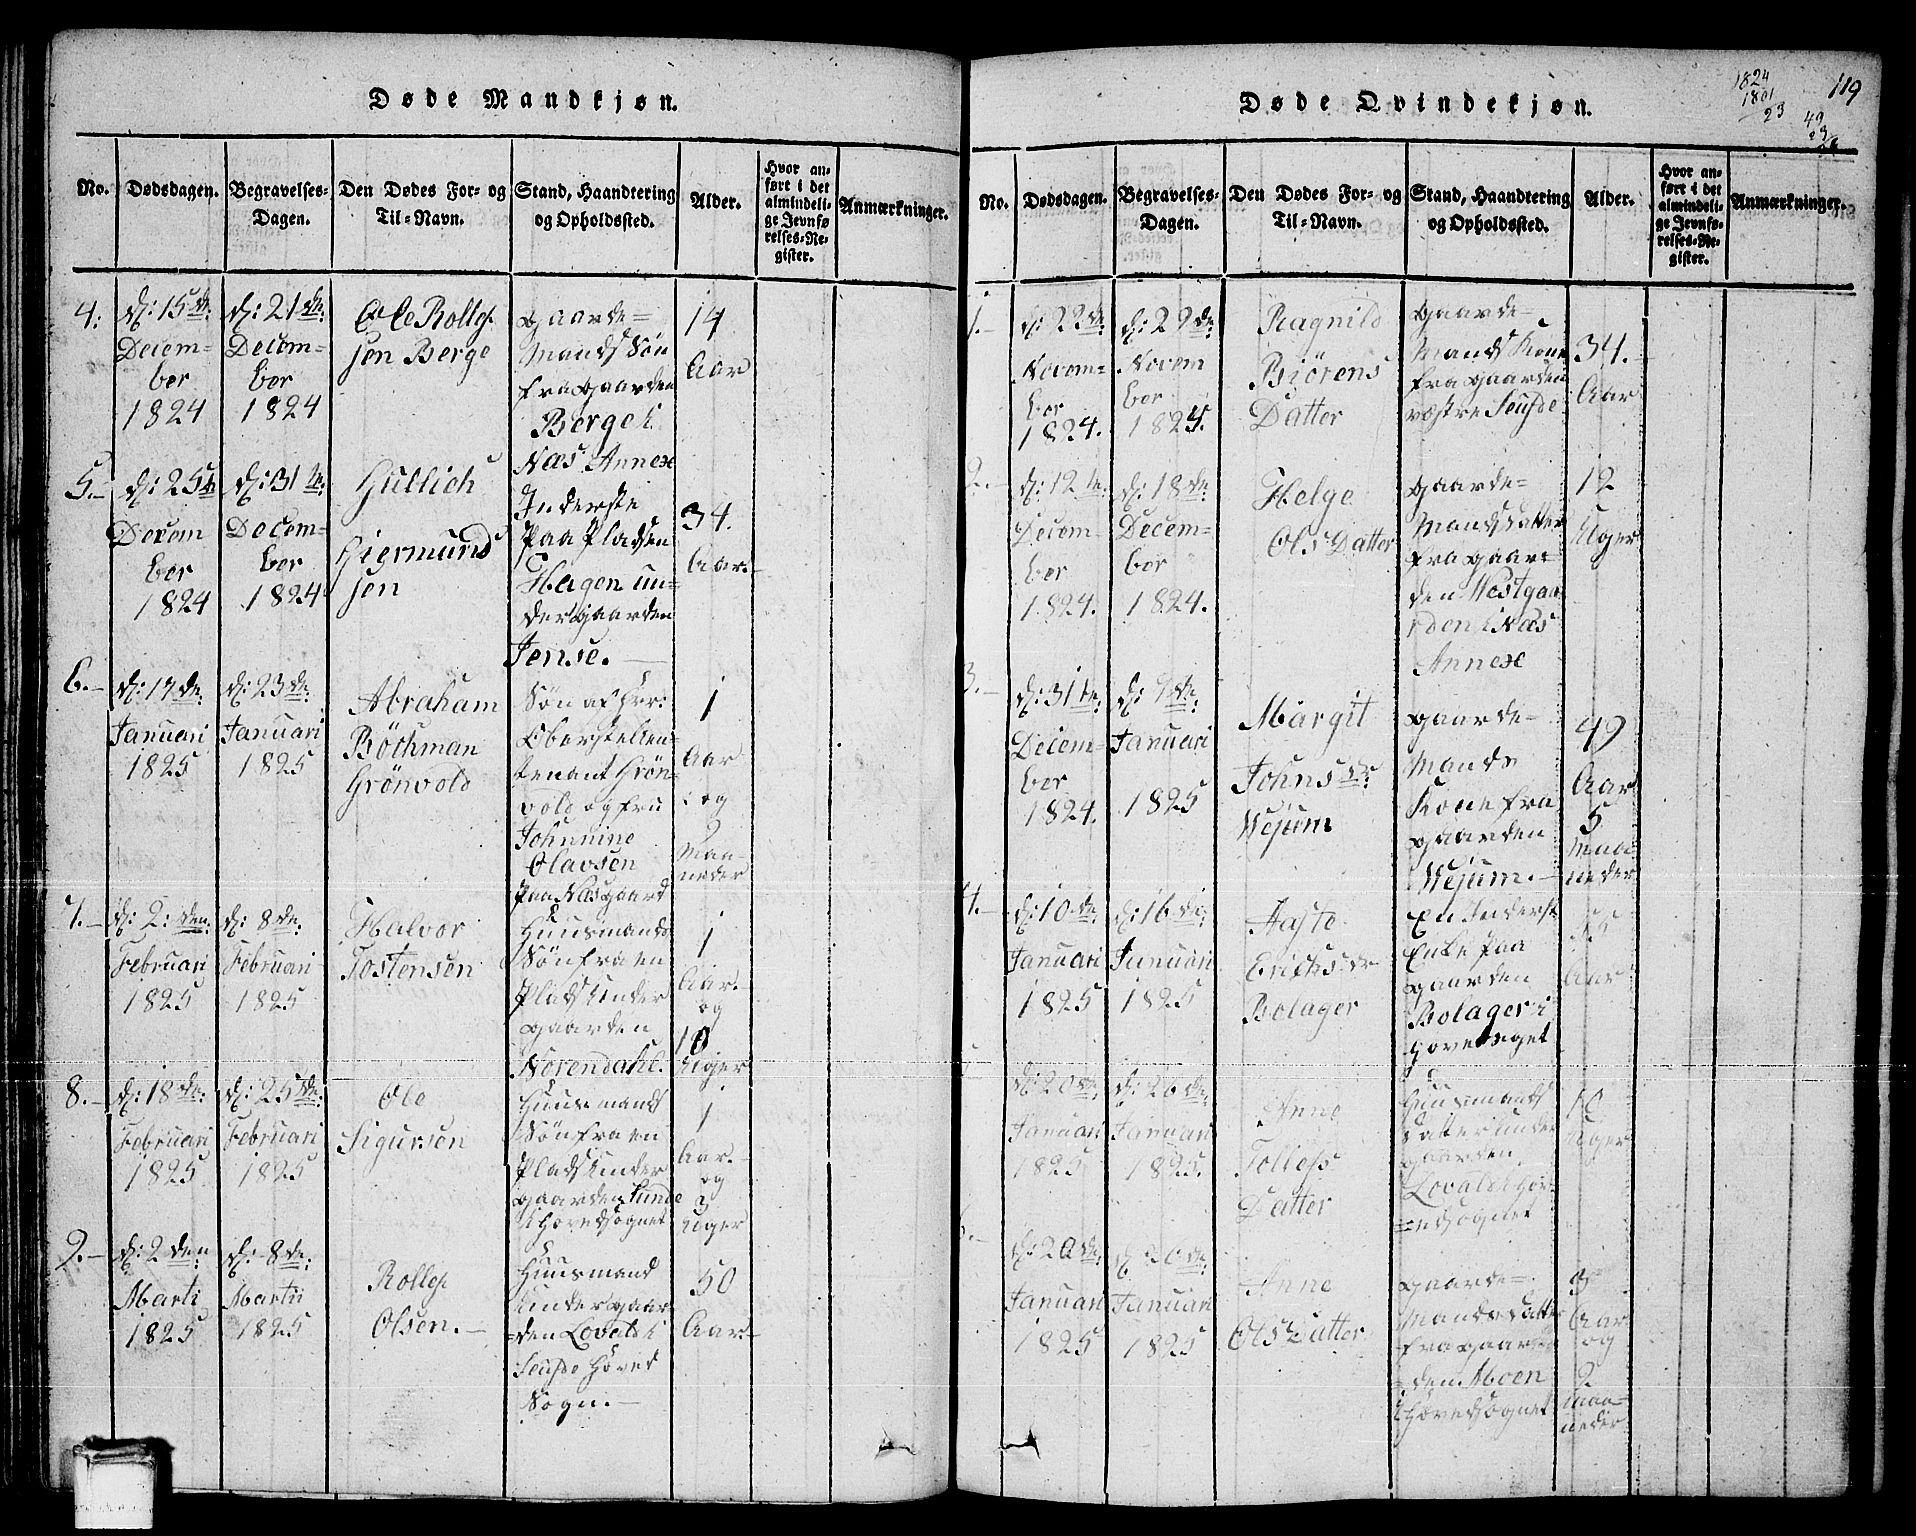 Døde Mandkjøn.
No.
Dødsdagen.
Begravelses-
Dagen.
Den Dødes For- og
Til-Navn.
Stand, Haandtering
og Opholdssted.
Alder.
Hvor an-
ført i det
almindeli-
ge Jevnfø-
relses-Re-
gister.
Anmærkninger.
4:
d: 15de
Decem-
ber
1824
d: 21de
Decem-
ber
1824
Ole Rollef
sen Berge
Gaarde-
Mands Søn
fra Gaarden
Berge i
Næs Annex
14
Aar
5.-
d: 25t
Decem
ber
1824
d: 31te
Decem-
ber
1824
Gullich
Giermund
sen
Inderste
Paa Pladsen
Hagen un-
der Gaarden
Jense.
34.
Aar.
6.-
d: 17de
Januari
1825
d: 23de
Januari
1825
Abraham
Böchman
Grönvold
Søn af Herr
Oberstelieu-
tenant Grön-
vold og Fru
Johnnine
Olavsen
Paa Næs gaard
1
Aar
og
9
Maa-
neder
7.-
d: 2: den
Februari
1825
d: 8de
Februari
1825
Halvor
Tostensen
Huusmands
Søn fra en
Plads under
Gaarden
Norendahl.
1
Aar.
og
10
Uger
8.-
d: 18de
Februari
1825
d: 25de
Februari
1825
Ole
Sigursen
Huusmands
Søn fra en
Plads under
Gaarden Lunde
i Hovedsognet
1
Aar.
og
3
Uger
9.-
d: 2den
Marti
1825
d: 8de
Martii
1825
Rollef
Olsen.
Huusmand
under Gaar
den Lovalds i
Seufde Hoved
Sogn.
50
Aar.
Døde Qvindekjøn.
1824
1801
23
49
23
26
119
No.
Dødsdagen.
Begravelses-
Dagen.
Den Dødes For- og
Til-Navn.
Stand, Haandtering
og Opholdssted.
Alder.
Hvor an-
ført i det
almindeli-
ge Jevnfø-
relses-Re-
gister.
Anmærkninger.
1.-
d: 22de
Novem-
ber
1824.
d: 29de
Novem
ber
1824.
Ragnild
Biörens
Datter
Gaarde-
Mands Kone
fra Gaarden
væstre Seufde
34.
Aar
2.-
d: 12te
Decem-
ber
1824.
d: 18de
Decem-
ber
1824.
Helge
Ols Datter
Gaarde-
Mands Datter
fra Gaar-
den Westgaa
rden i Næs
Annex
12
Uger
3.-
d: 31te
Decem-
ber
1824.
d: 7de
Januari
1825
Margit
Johns dr
Wejum
Gaarde-
Mands
Kone fra
Gaarden
Wejum.
49
Aar
5
Maa-
neder
4.-
d: 10de
Januari
1825
d: 16de
Januari
1825
Aaste
Erichs dr
Bolager
En Inderst
Enke Paa
Gaarden
Bolager i
Hovedsognet
Aar
d: 20de
Januari
1825
d: 26de
Januari
1825.
Anne
Tollefs
Datter
Huusmands
Datter under
Gaarden
Lovalds i Hov-
edsognet
10
Uger
6.-
d: 20de
Januari
1825
d: 26de
Januari
1825
Anne
Ols Datter
Gaarde-
Mands Datter
fra Gaar
den Moen
i Hovedsognet
3
Aar
og
9
Maa-
neder